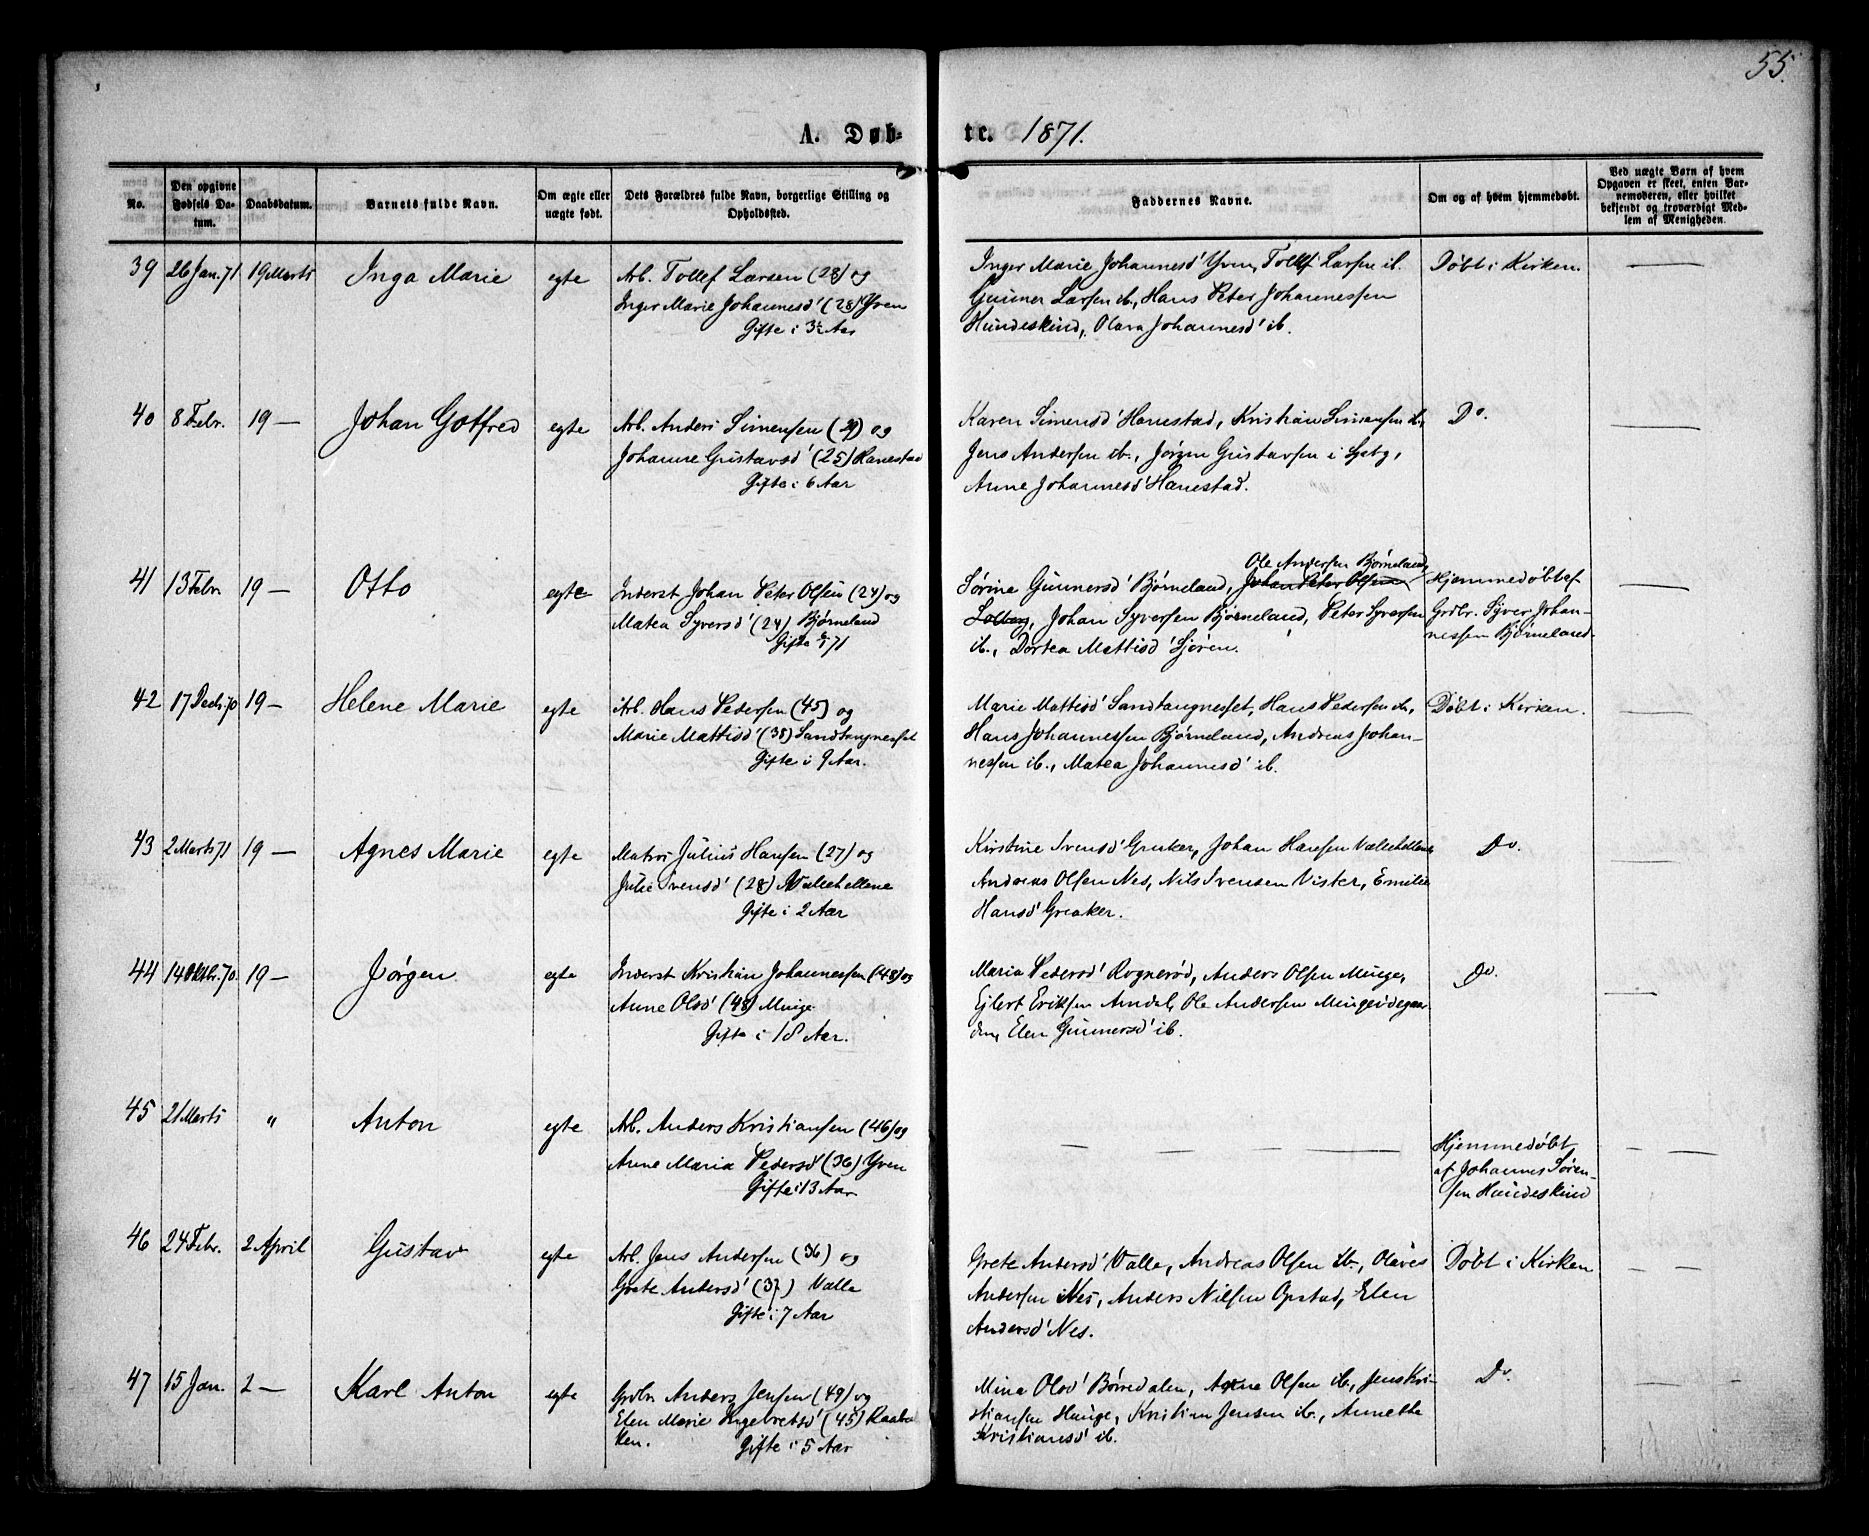 55.
A. Døb- te. 1871.
No.
Den opgivne Fødsels Da-
tum.
Daabsdatum.
Barnets fulde Navn.
Om ægte eller
uægte født.
Dets Forældres fulde Navn, borgerlige Stilling og
Opholdssted.
Faddernes Navne.
Om og af hvem hjemmedøbt.
Ved uægte Børn af hvem
Opgaven er skeet, enten Bar-
nemoderen, eller hvilket
bekjendt og troværdigt Med-
lem af Menigheden.
39 26 Jan. 71 19 Marts Inga Marie egte Arb. Tollef Larsen (28) og
Inger Marie Johannesd' (28) Yven
Gifte i 3½ Aar
Inger Marie Johannesd' Yven, Tollef Larsen ib.
Gunner Larsen ib., Hans Peter Johannessen
Hundeskind, Olava Johannesd' ib.
Døbt i Kirken. —
40 8 Febr. 19 — Johan Gotfred egte Arb. Anders Simensen (29) og
Johanne Gustavsd' (25) Hanestad
Gifte i 6 Aar
Karen Simensd' Hanestad, Kristian Simensen ib.,
Jens Andersen ib., Jørgen Gustavsen i Spbg,
Anne Johannesd' Hanestad.
Do. —
41 13 Febr 19 — Otto egte Inderst Johan Peter Olsen (24) og
Matea Syversd' (24) Bjørneland
Gifte 71
Ole Andersen Bjørneland,
Sørine Gunnersd' Bjørneland, Johan Peter Olsen
Solberg, Johan Syversen Bjørneland, Peter Syversen
ib., Dortea Mattisd' Sjøren.
Hjemmedøbt af
Grdbr. Syver Johan-
nessen Bjørneland. —
42 17 Decb 70 19 — Helene Marie egte Arb. Hans Pedersen (45) og
Marie Mattisd' (38) Sandtangnesset
Gifte i 9 Aar.
Marie Mattisd' Sandtangnesset, Hans Pedersen ib.,
Hans Johannessen Bjørneland, Andreas Johan-
nessen ib., Matea Johannesd' ib.
Døbt i Kirken. —
43 2 Marts 71 19 — Agnes Marie egte Matros Julius Hansen (27) og
Julie Svensd' (28) Vallehellene
Gifte i 2 Aar
Kirstine Svensd' Greaker, Johan Hansen Vallehellene
Andreas Olsen Nes, Nils Svensen Vister, Emilie
Hansd' Greaker.
Do. —
44 14 Oktbr. 70. 19 — Jørgen egte Inderst Kristian Johannessen (48) og
Anne Olsd' (48) Minge
Gifte i 18 Aar.
Maria Pedersd' Rognerød, Anders Olsen Minge,
Ejlert Eriksen Amdal, Ole Andersen Mingeødegaar
den, Elen Gunnersd' ib.
Do. —
45 21 Marts " Anton egte Arb. Anders Kristiansen (46) og
Anne Maria Pedersd' (36) Yven
Gifte i 13 Aar
— — — —
Hjemmedøbt
af Johannes Søren-
sen Hundeskind — —
46 24 Febr. 2 April Gustav egte Arb. Jens Andersen (36) og
Grete Andersd' (37) Valle
Gifte i 7 Aar
Grete Andersd' Valle, Andreas Olsen ib., Olaves
Andersen Nes, Anders Nilsen Opstad, Elen
Andersd' Nes.
Døbt i Kirken — —
47 15 Jan. 2 — Karl Anton egte Grdbr. Anders Jensen (49) og
Elen Marie Ingebretsd' (45) Raabek
ken. Gifte i 5 Aar
Mina Olsd' Børredalen, Anne Olsen ib., Jens Kri-
stiansen Hauge, Kristian Jensen ib., Annette
Kristiansd' ib.
Do. — —